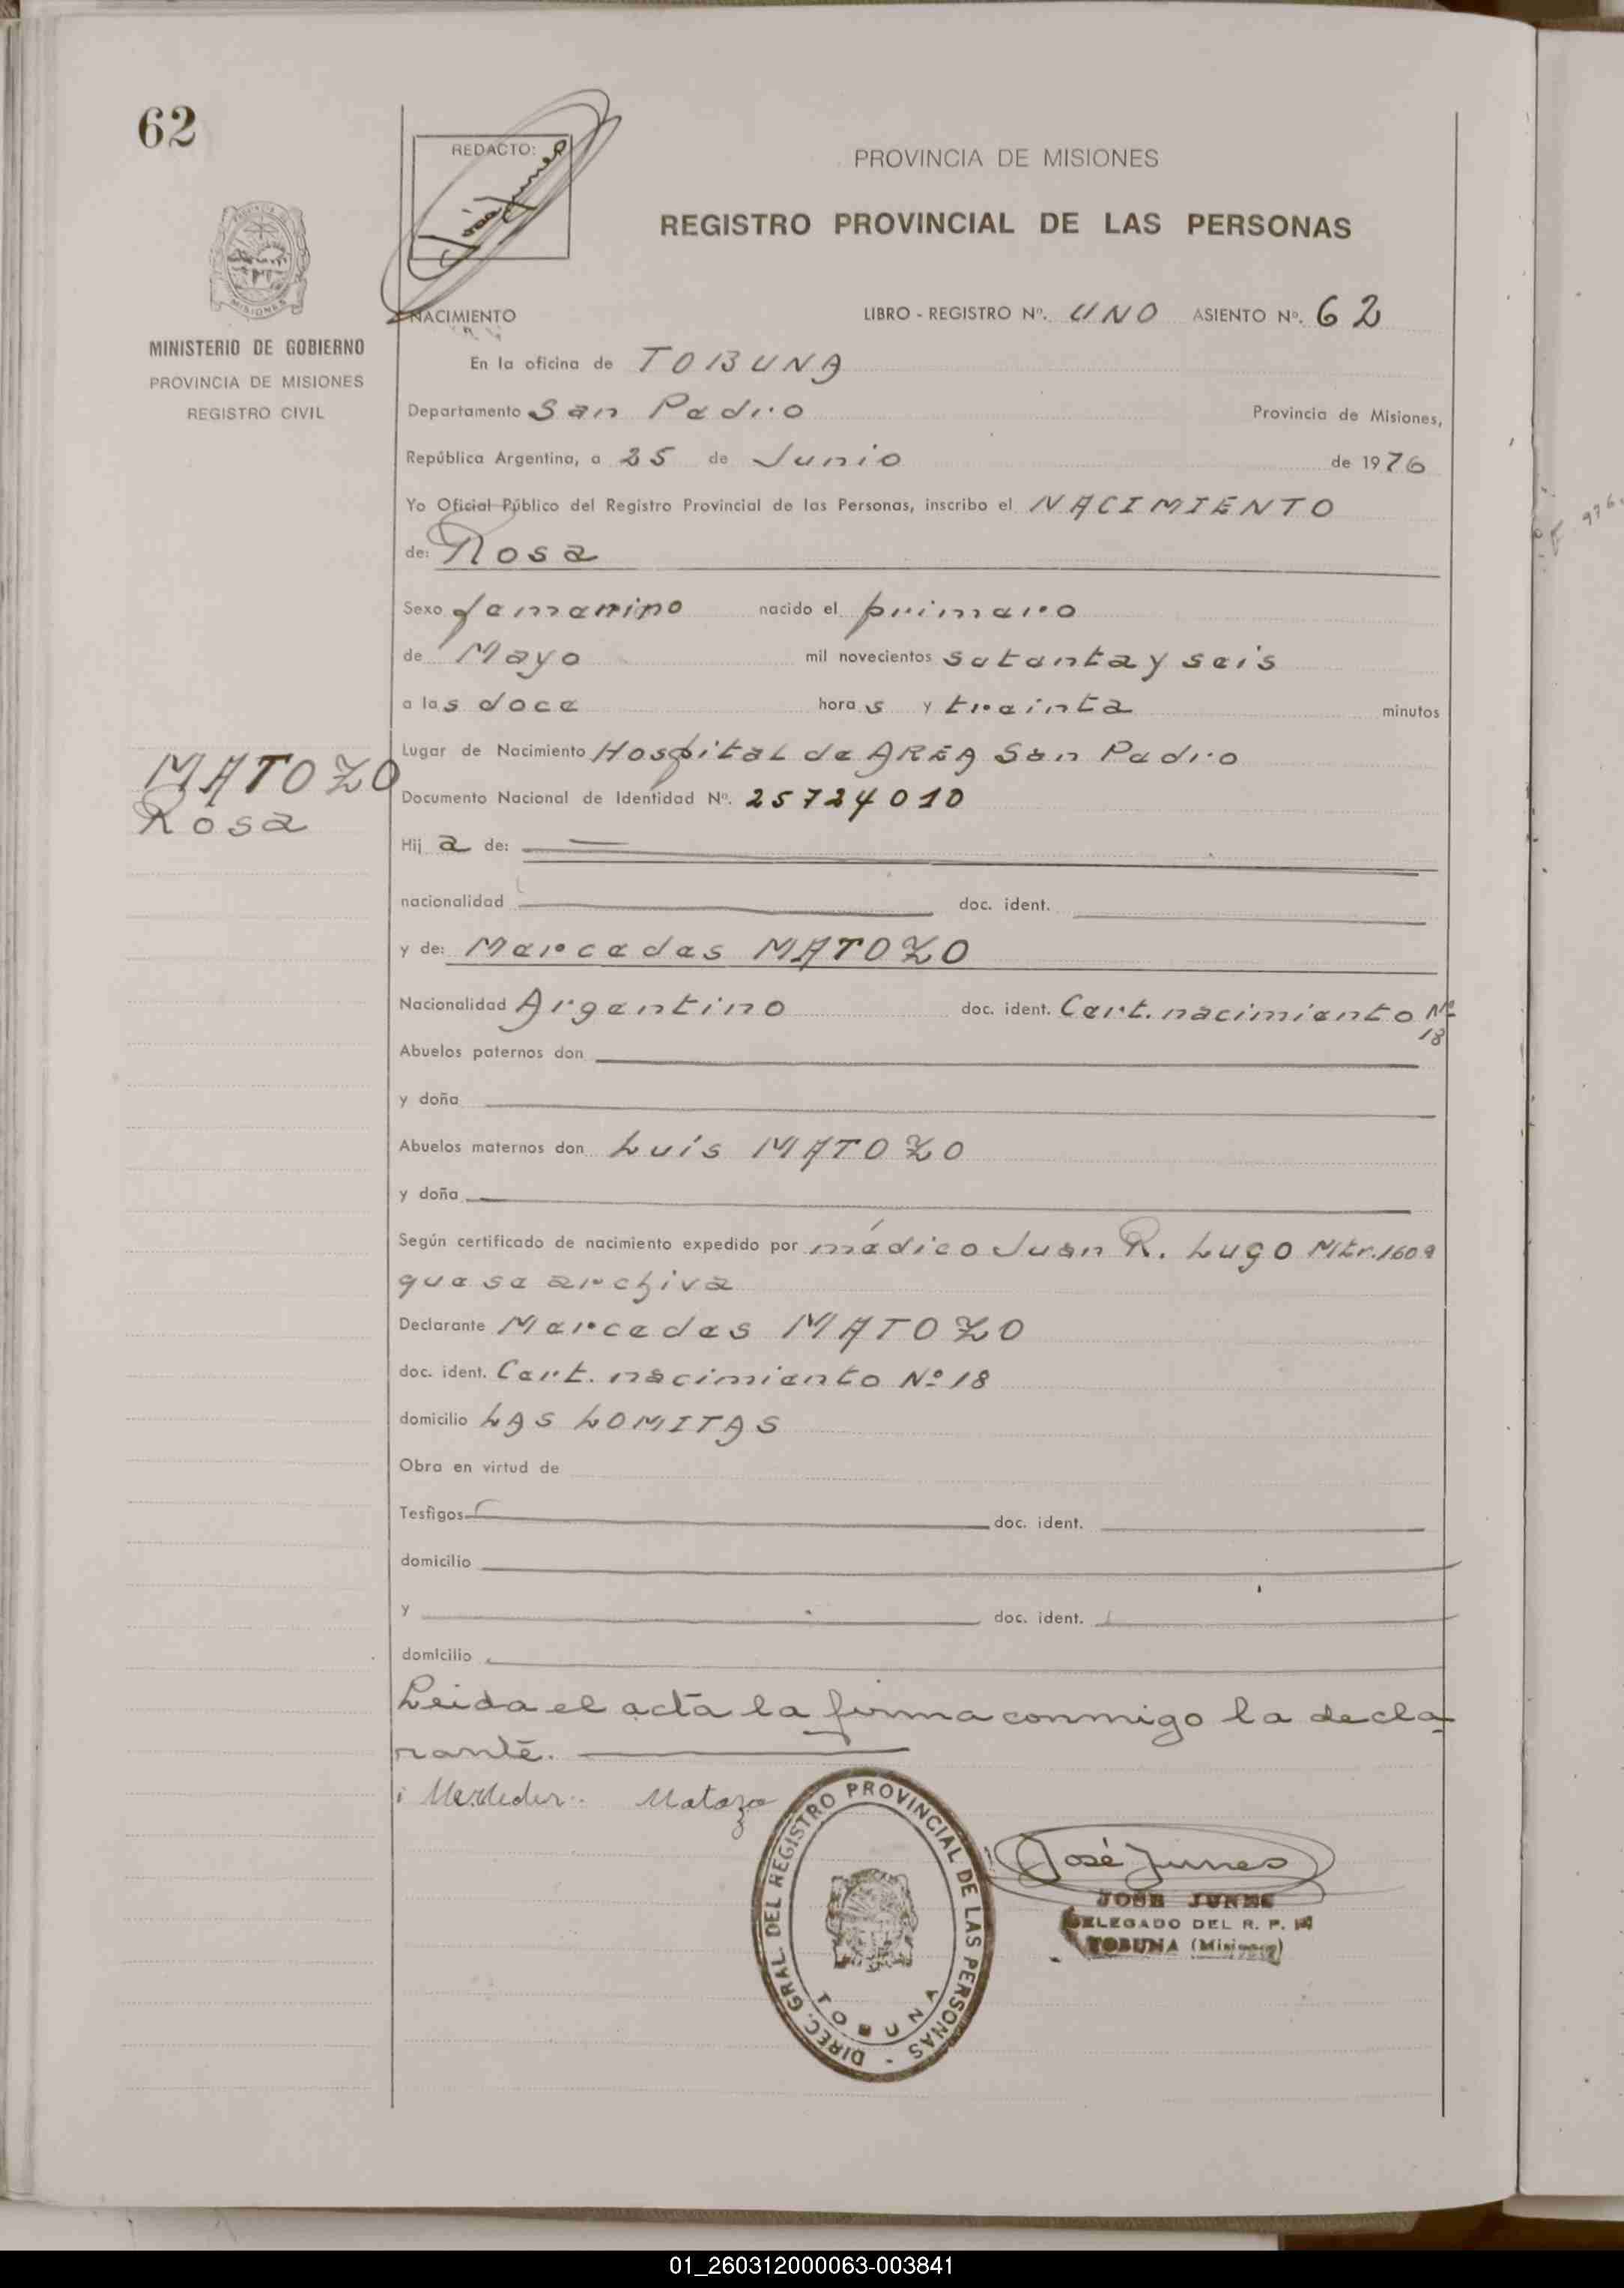 62
REDACTO:
PROVINCIA DE MISIONES
REGISTRO PROVINCIAL DE LAS PERSONAS
MINISTERIO DE GOBIERNO
PROVINCIA DE MISIONES
REGISTRO CIVIL
NACIMIENTO
LIBRO - REGISTRO Nº. UNO ASIENTO Nº. 62
En la oficina de TOBUNA
Departamento San Pedro Provincia de Misiones,
República Argentina, a 25 de Junio de 1976
Yo Oficial Público del Registro Provincial de las Personas, inscribo el NACIMIENTO
de: Rosa
Sexo femenino nacido el primero
de Mayo mil novecientos setenta y seis
a las doce horas y treinta minutos
Lugar de Nacimiento Hospital de AREA San Pedro
MATOZO
Rosa
Documento Nacional de Identidad Nº. 25724010
Hija de:
nacionalidad doc. ident.
y de: Mercedes MATOZO
Nacionalidad Argentino doc. ident. Cert. nacimiento Nº
18
Abuelos paternos don
y doña
Abuelos maternos don Luis MATOZO
y doña
Según certificado de nacimiento expedido por médico Juan R. Lugo Mtr. 1609
que se archiva
Declarante Mercedes MATOZO
doc. ident. Cert. nacimiento Nº 18
domicilio LAS LOMITAS
Obra en virtud de
Testigos doc. ident.
domicilio
y doc. ident.
domicilio
Leida el acta la firma conmigo la decla
rante.
Matozo
DIREC. GRAL. DEL REGISTRO PROVINCIAL DE LAS PERSONAS -
TOBUNA
José Junes
JOSE JUNES
DELEGADO DEL R. P. P.
TOBUNA (Misiones)
01_260312000063-003841